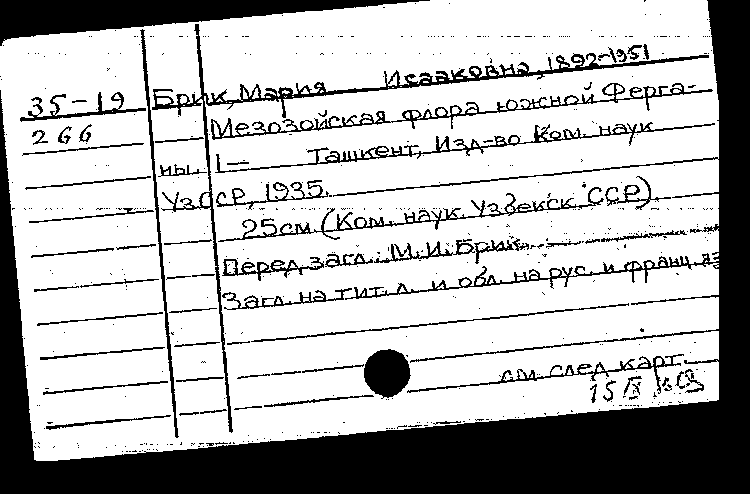 35-19 Брик, Мария Исааковна, 1892-1951
266 Мезозойская флора южной Ферга-
ны. 1— Ташкент, Изд-во Ком. наук
УзССР, 1935.
25см. (Ком. наук Узбекск. ССР).
Перед загл.: М.И. Брик.
Загл. на тит. л. и обл. на рус. и франц. яз
см. след. карт.
15 IX